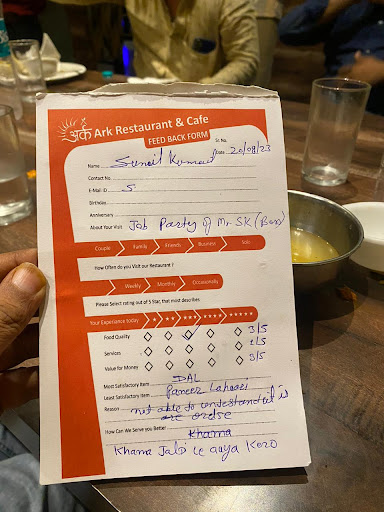 अर्क Ark Restaurant & Cafe
FEED BACK FORM
Sr. No.
Name Sunil Kumar Date 20/08/23
Contact No.
E-Mail ID S
Birthday
Anniversary
About Your Visit Job Party of Mr. SK (Boss)
Couple Family Friends Business Solo
How Often do you Visit our Restaurant ?
Weekly Monthly Occasionally
Please Select rating out of 5 Star, that most describes
Your Experience today ★ ★★ ★★★ ★★★★ ★★★★★
Food Quality 3/5
Services 1/5
Value for Money 3/5
Most Satisfactory Item DAL
Least Satisfactory Item Paneer Lahori
Reason not able to understand
are ordse
How Can We Serve you Better Khama
Khama Jaldi le aaya Karo